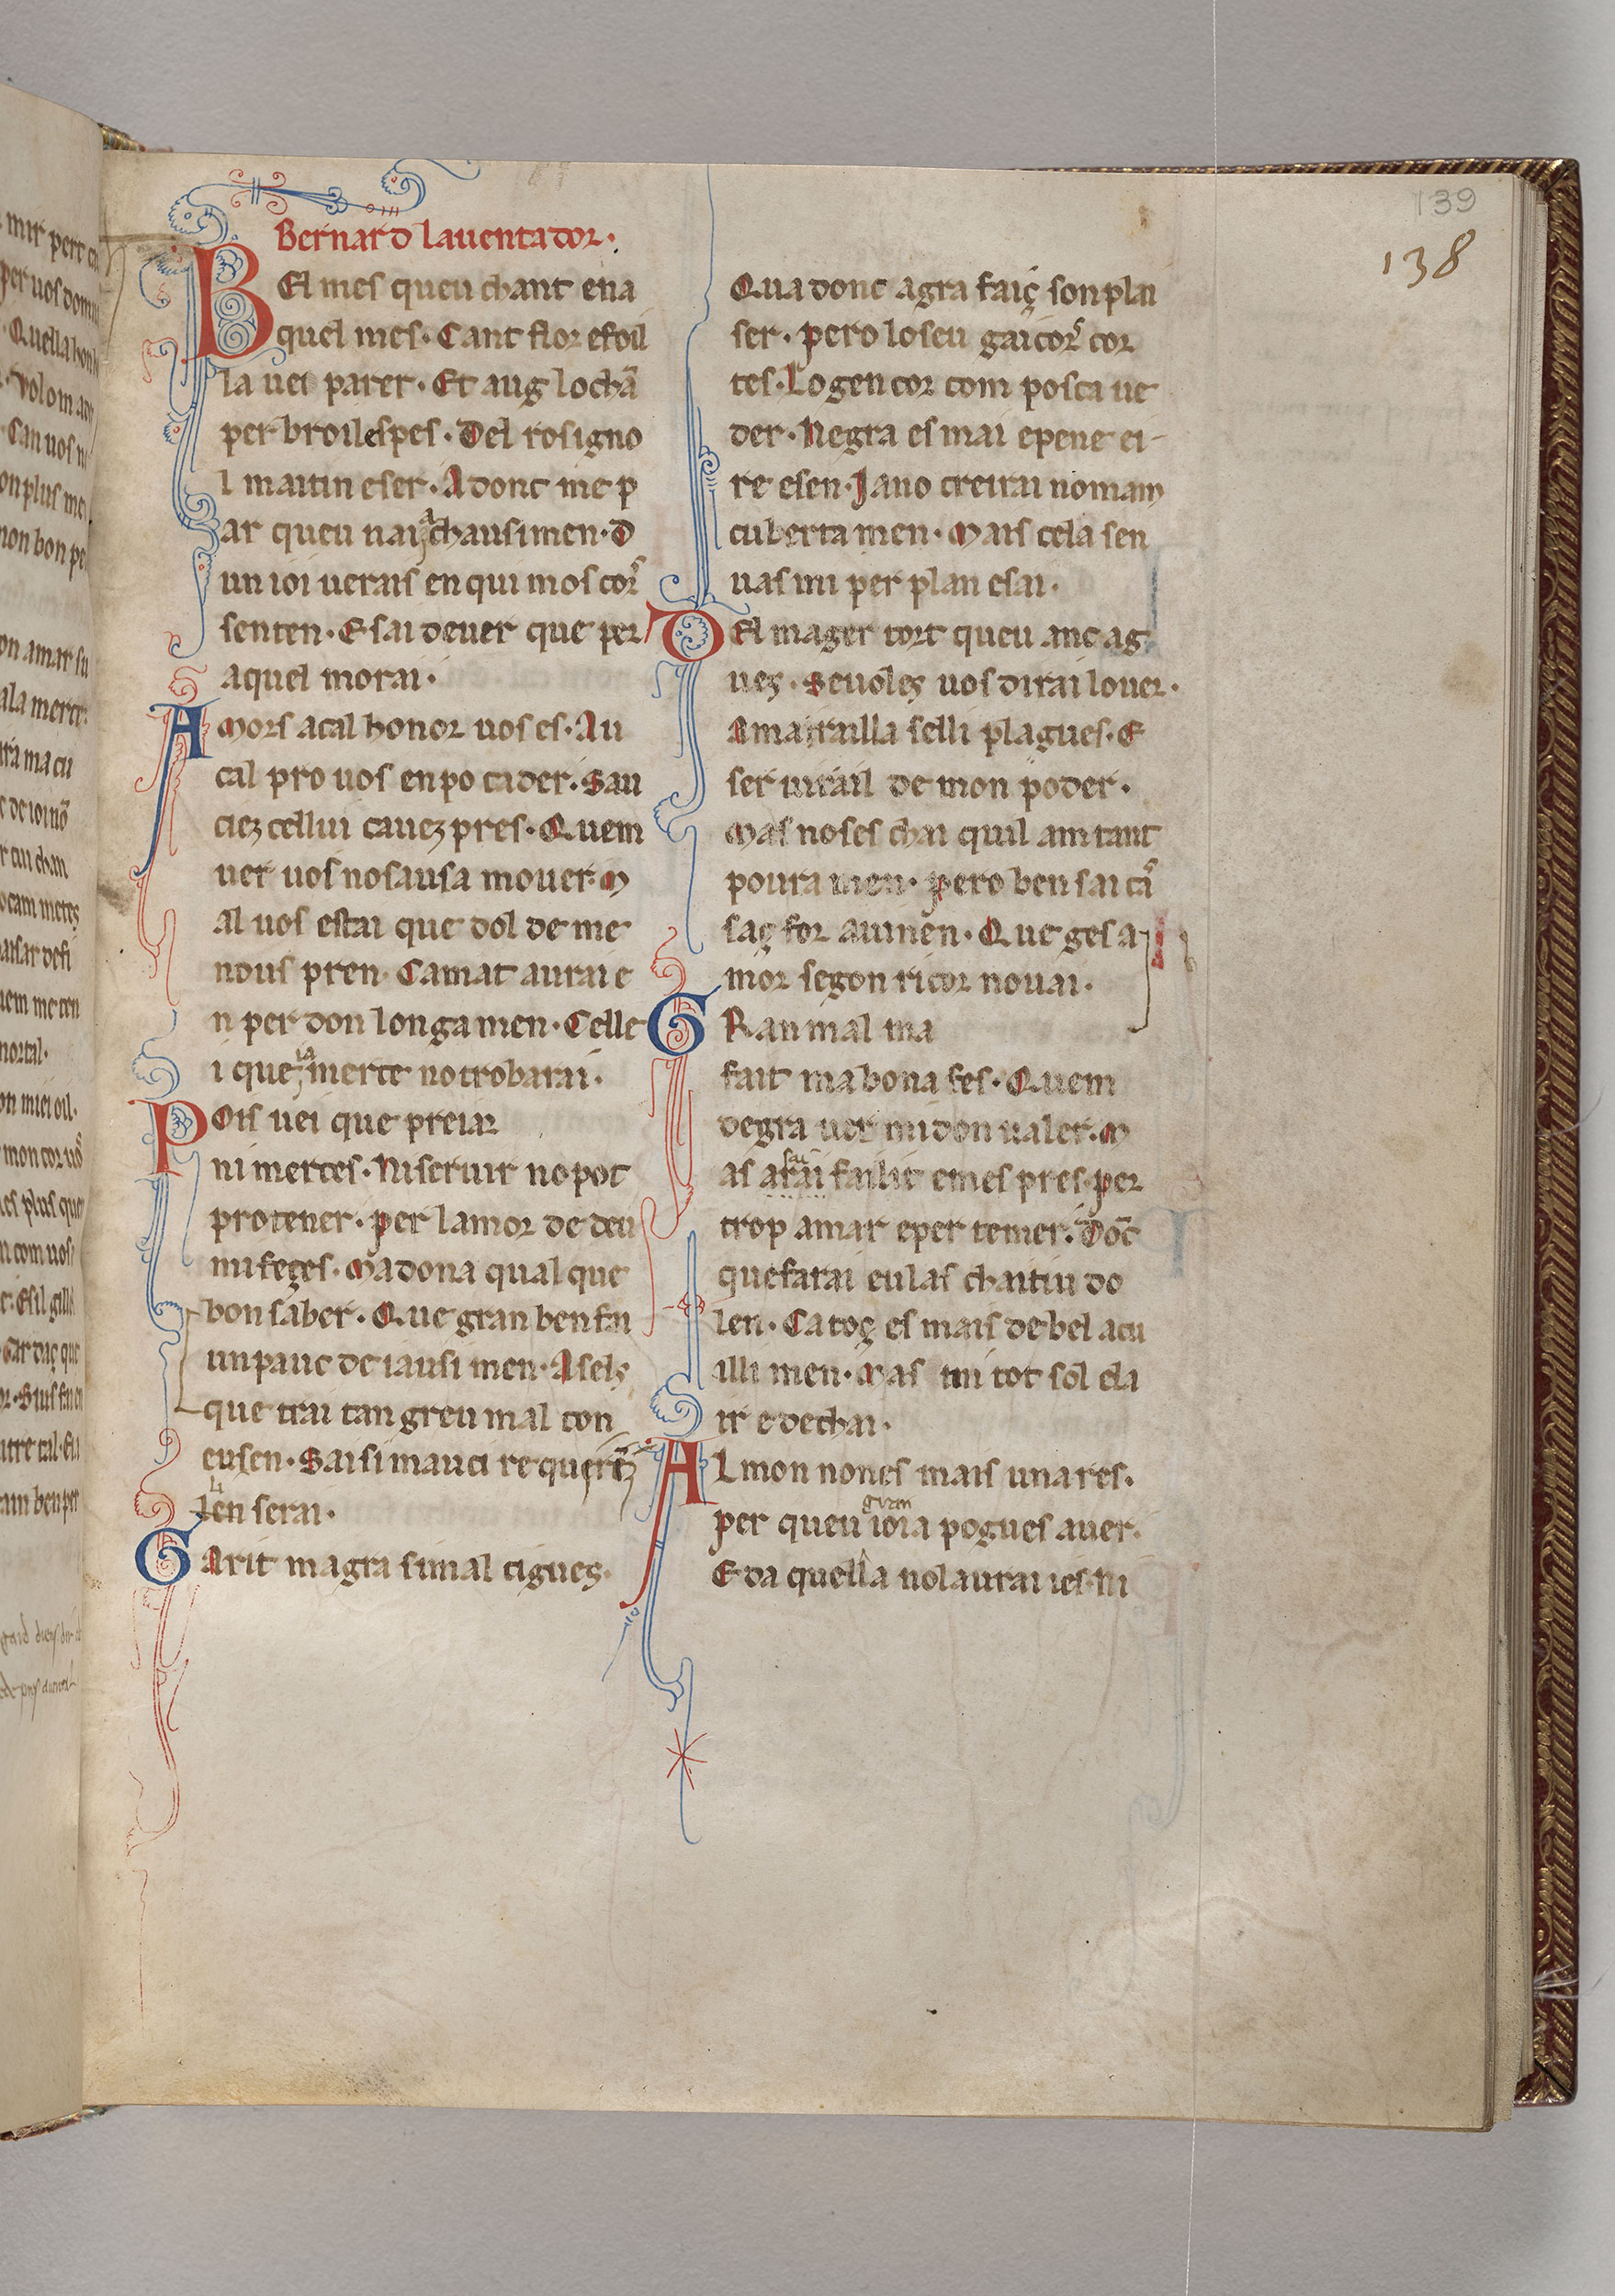 139
138
Bernard lauentador.
BEl mes queu chant ena
quel mes. Cant flor efoil
la uei parer. Et aug lochā
per broilespes. Del rosigno
l maitin eser. Adonc me p
ar queu naiachausimen. D
un ioi uerais en qui mos cor
senten. E sai deuer que per
aquel morai.
Amors acal honor uos es. Au
cal pro uos en po cader. Sau
ciez cellui cauez pres. Quem
uer uos nosausa mouer. M
al uos estai que dol de me
nous pren. Camat aurai e
n perdon longamen. Celle
i que la merce notrobarai.
Pois uei que preiar
ni merces. Niseruir nopot
pro tener. per lamor de deu
mi feçes. Madona qual que
bon saber. Que gran ben fai
un pauc de iausi men. Asels
que trai tan greu mal con
eu sen. Sai si mauci
li en serai.
Garit magra simal tigues.
Qua donc agra faiç son plai
ser. pero loseu gai cors cor
tes. Logen cor com posca ue
der. Negra es mai epene ei-
re esen. Ja no creirai nomam
cuberta men. Mais cela sen
uas mi per plan esai.
DEl mager tort queu anc ag
ues. Seuoles uos dirai louer.
Amaira illa selli plagues. E
ser uirail de mon poder.
Mas noses chai quil am tant
poura men. pero ben sai
saç for auinen. Que ges a
mor segon ricor nouai.
GRan mal ma
fait ma bona fes. Quem
degra uer midon ualer. M
as arai sai faillit emes pres. per
trop amar eper temer. Doc
que farai eu las chaitiu do
len. Ca toç es mais de bel acu
illi men. Mas mi tot sol ela
ir e dechai.
AL mon nones mais una res.
per queu gran ioia pogues auer.
E da quella nolaurai ies. Ni